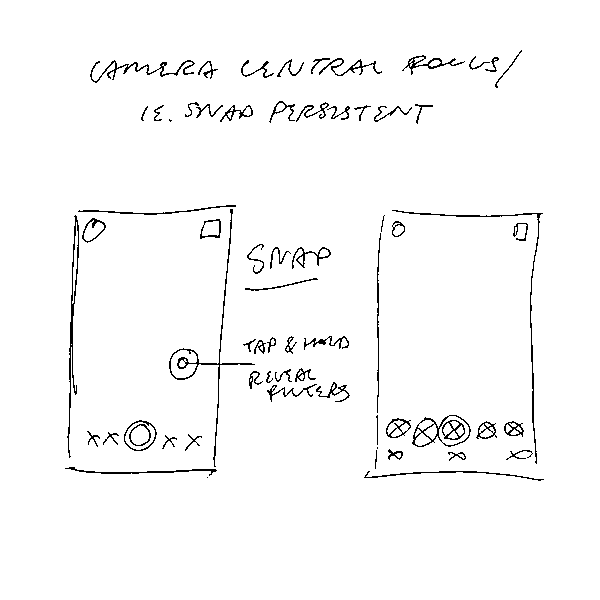 CAMERA CENTRAL FOCUS/
IE. SNAP PERSISTENT
SNAP
TAP & HOLD
REVEAL
FILTERS